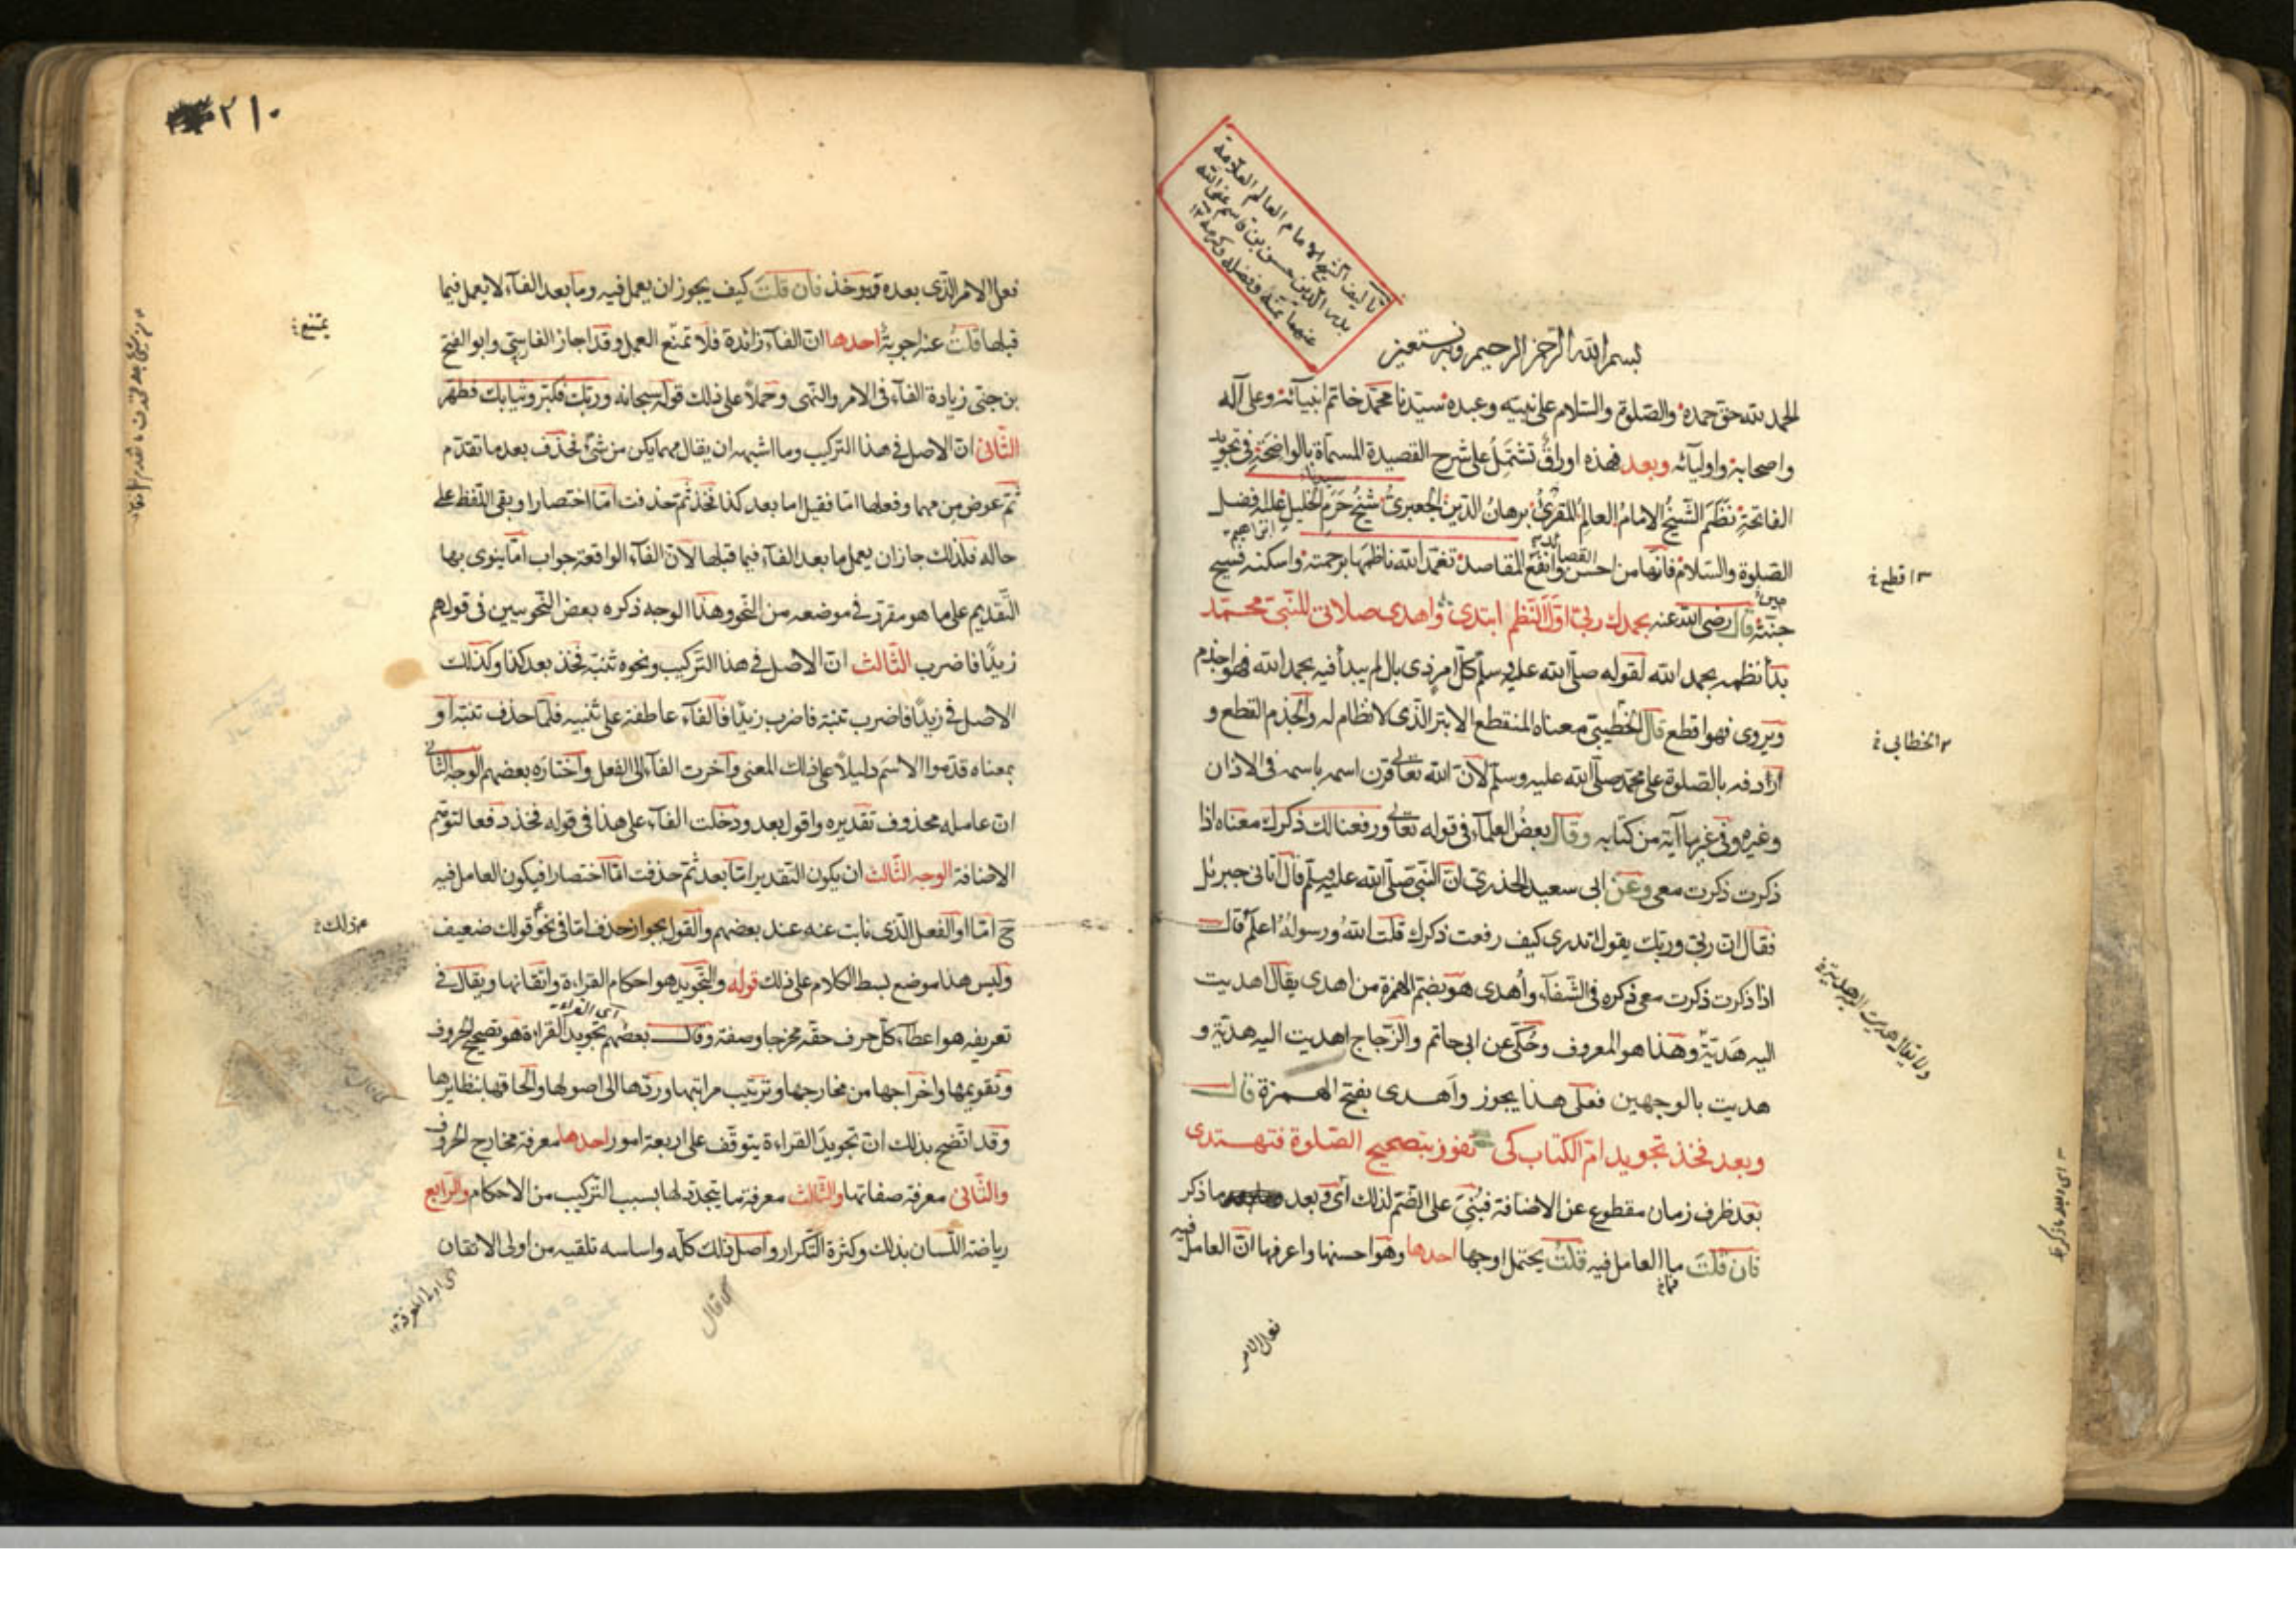 تأليف الشيخ الامام العالم العلامة
بدر الدين حسن بن قاسم عفى الله
عنهما بمنه وفضله وكرمه
بسم الله الرحمن الرحيم وبه نستعين
الحمد لله حق حمده والصلوة والسلام على نبيه وعبده سيدنا محمد خاتم انبيائه وعلى آله
واصحابه واوليائه وبعد فهذه اوراق تشتمل على شرح القصيدة المسماة بالواضحة في تجويد
الفاتحة نظم الشيخ الامام العالم المقرئ برهان الدين الجعبري شيخ حرم الخليل عليه افضل
ابراهيم
الصلوة والسلام فانها من احسن القصائد وانفع المقاصد تغمد الله ناظمها برحمته واسكنه فسيح
جنته قال رضى الله عنه بحمدك ربى اول النظم ابتدى واهدى صلاتى للنبى محمد
بدأ نظمه بحمد الله لقوله صلى الله عليه وسلم كل امر ذى بال لم يبدأ فيه بحمد الله فهو اجذم
ويروى فهو اقطع قال الخطيبى معناه المنقطع الابتر الذى لا نظام له والجذم القطع و
اردفه بالصلوة على محمد صلى الله عليه وسلم لان الله تعالى قرن اسمه باسمه فى الاذان
وغيره وفى غيرها آية من كتابه وقال بعض العلماء فى قوله تعالى ورفعنا لك ذكرك معناه اذا
ذكرت ذكرت معى وعن ابى سعيد الخدرى ان النبى صلى الله عليه وسلم قال اتانى جبرئل
فقال ان ربى وربك يقول تدرى كيف رفعت ذكرك قلت الله ورسوله اعلم قال
اذا ذكرت ذكرت معى ذكره فى الشفاء وأهدى هو بضم الهمزة من اهدى يقال اهديت
اليه هدية وهذا هو المعروف وحكى عن ابى حاتم والزجاج اهديت اليه هدية و
هديت بالوجهين فعلى هذا يجوز وأهدى بفتح الهمزة قال
وبعد فخذ تجويد ام الكتاب كى تفوز بتصحيح الصلوة فتهتدى
بعد ظرف زمان مقطوع عن الاضافة فبنى على الضم لذلك اى وبعد ما ذكر
فان قلت ما العامل فيه قلت يحتمل اوجها احدها وهو احسنها واعرفها ان العامل فيه
فعل الامر
اقطع
الخطابى
٢١٠
فعل الامر الذى بعده وهو خذ فان قلت كيف يجوز ان يعمل فيه وما بعد الفاء لا يعمل فيما
قبلها قلت عنه اجوبة احدها ان الفاء زائدة فلا تمنع العمل وقد اجاز الفارسى وابو الفتح
بن جنى زيادة الفاء فى الامر والنهى وحملا على ذلك قوله سبحانه وربك فكبر وثيابك فطهر
الثانى ان الاصل فى هذا التركيب وما اشبهه ان يقال مهما يكن من شئ فحذف بعد ما تقدم
ثم عوض من مهما وفعلها اما فقيل اما بعد كذا فخذ ثم حذفت اما اختصارا وبقى اللفظ على
حاله فلذلك جاز ان يعمل ما بعد الفاء فيما قبلها لان الفاء الواقعة جواب اما ينوى بها
التقديم على ما هو مقرر فى موضعه من النحو وهذا الوجه ذكره بعض النحويين فى قولهم
زيدا فاضرب الثالث ان الاصل فى هذا التركيب ونحوه تنبه فخذ بعد كذا وكذلك
الاصل فى زيدا فاضرب تنبه فاضرب زيدا فالفاء عاطفة على تنبيه فلما حذف تنبه او
بمعناه قدموا الاسم دليلا على ذلك المعنى وأخرت الفاء الى الفعل واختاره بعضهم الوجه الثانى
ان عامله محذوف تقديره واقول بعد ودخلت الفاء على هذا فى قوله فخذ دفعا لتوهم
الاضافة الوجه الثالث ان يكون التقدير اما بعد ثم حذفت اما اختصارا فيكون العامل فيه
ح اما او الفعل الذى نابت عنه عند بعضهم والقول بجواز حذف اما فى نحو قولك ضعيف
وليس هذا موضع بسط الكلام على ذلك قوله والتجويد هو احكام القراءة واتقانها ويقال فى
تعريفه هو اعطاء كل حرف حقه مخرجا وصفة وقال بعضهم تجويد القراءة هو تصحيح الحروف
وتقويمها واخراجها من مخارجها وترتيب مراتبها وردها الى اصولها والحاقها بنظايرها
وقد اتضح بذلك ان تجويد القراءة يتوقف على اربعة امور احدها معرفة مخارج الحروف
والثانى معرفة صفاتها والثالث معرفة ما يتجدد لها بسبب التركيب من الاحكام والرابع
رياضة اللسان بذلك وكثرة التكرار واصل ذلك كله واساسه تلقيه من اولى الاتقان
يمتنع
كما قال